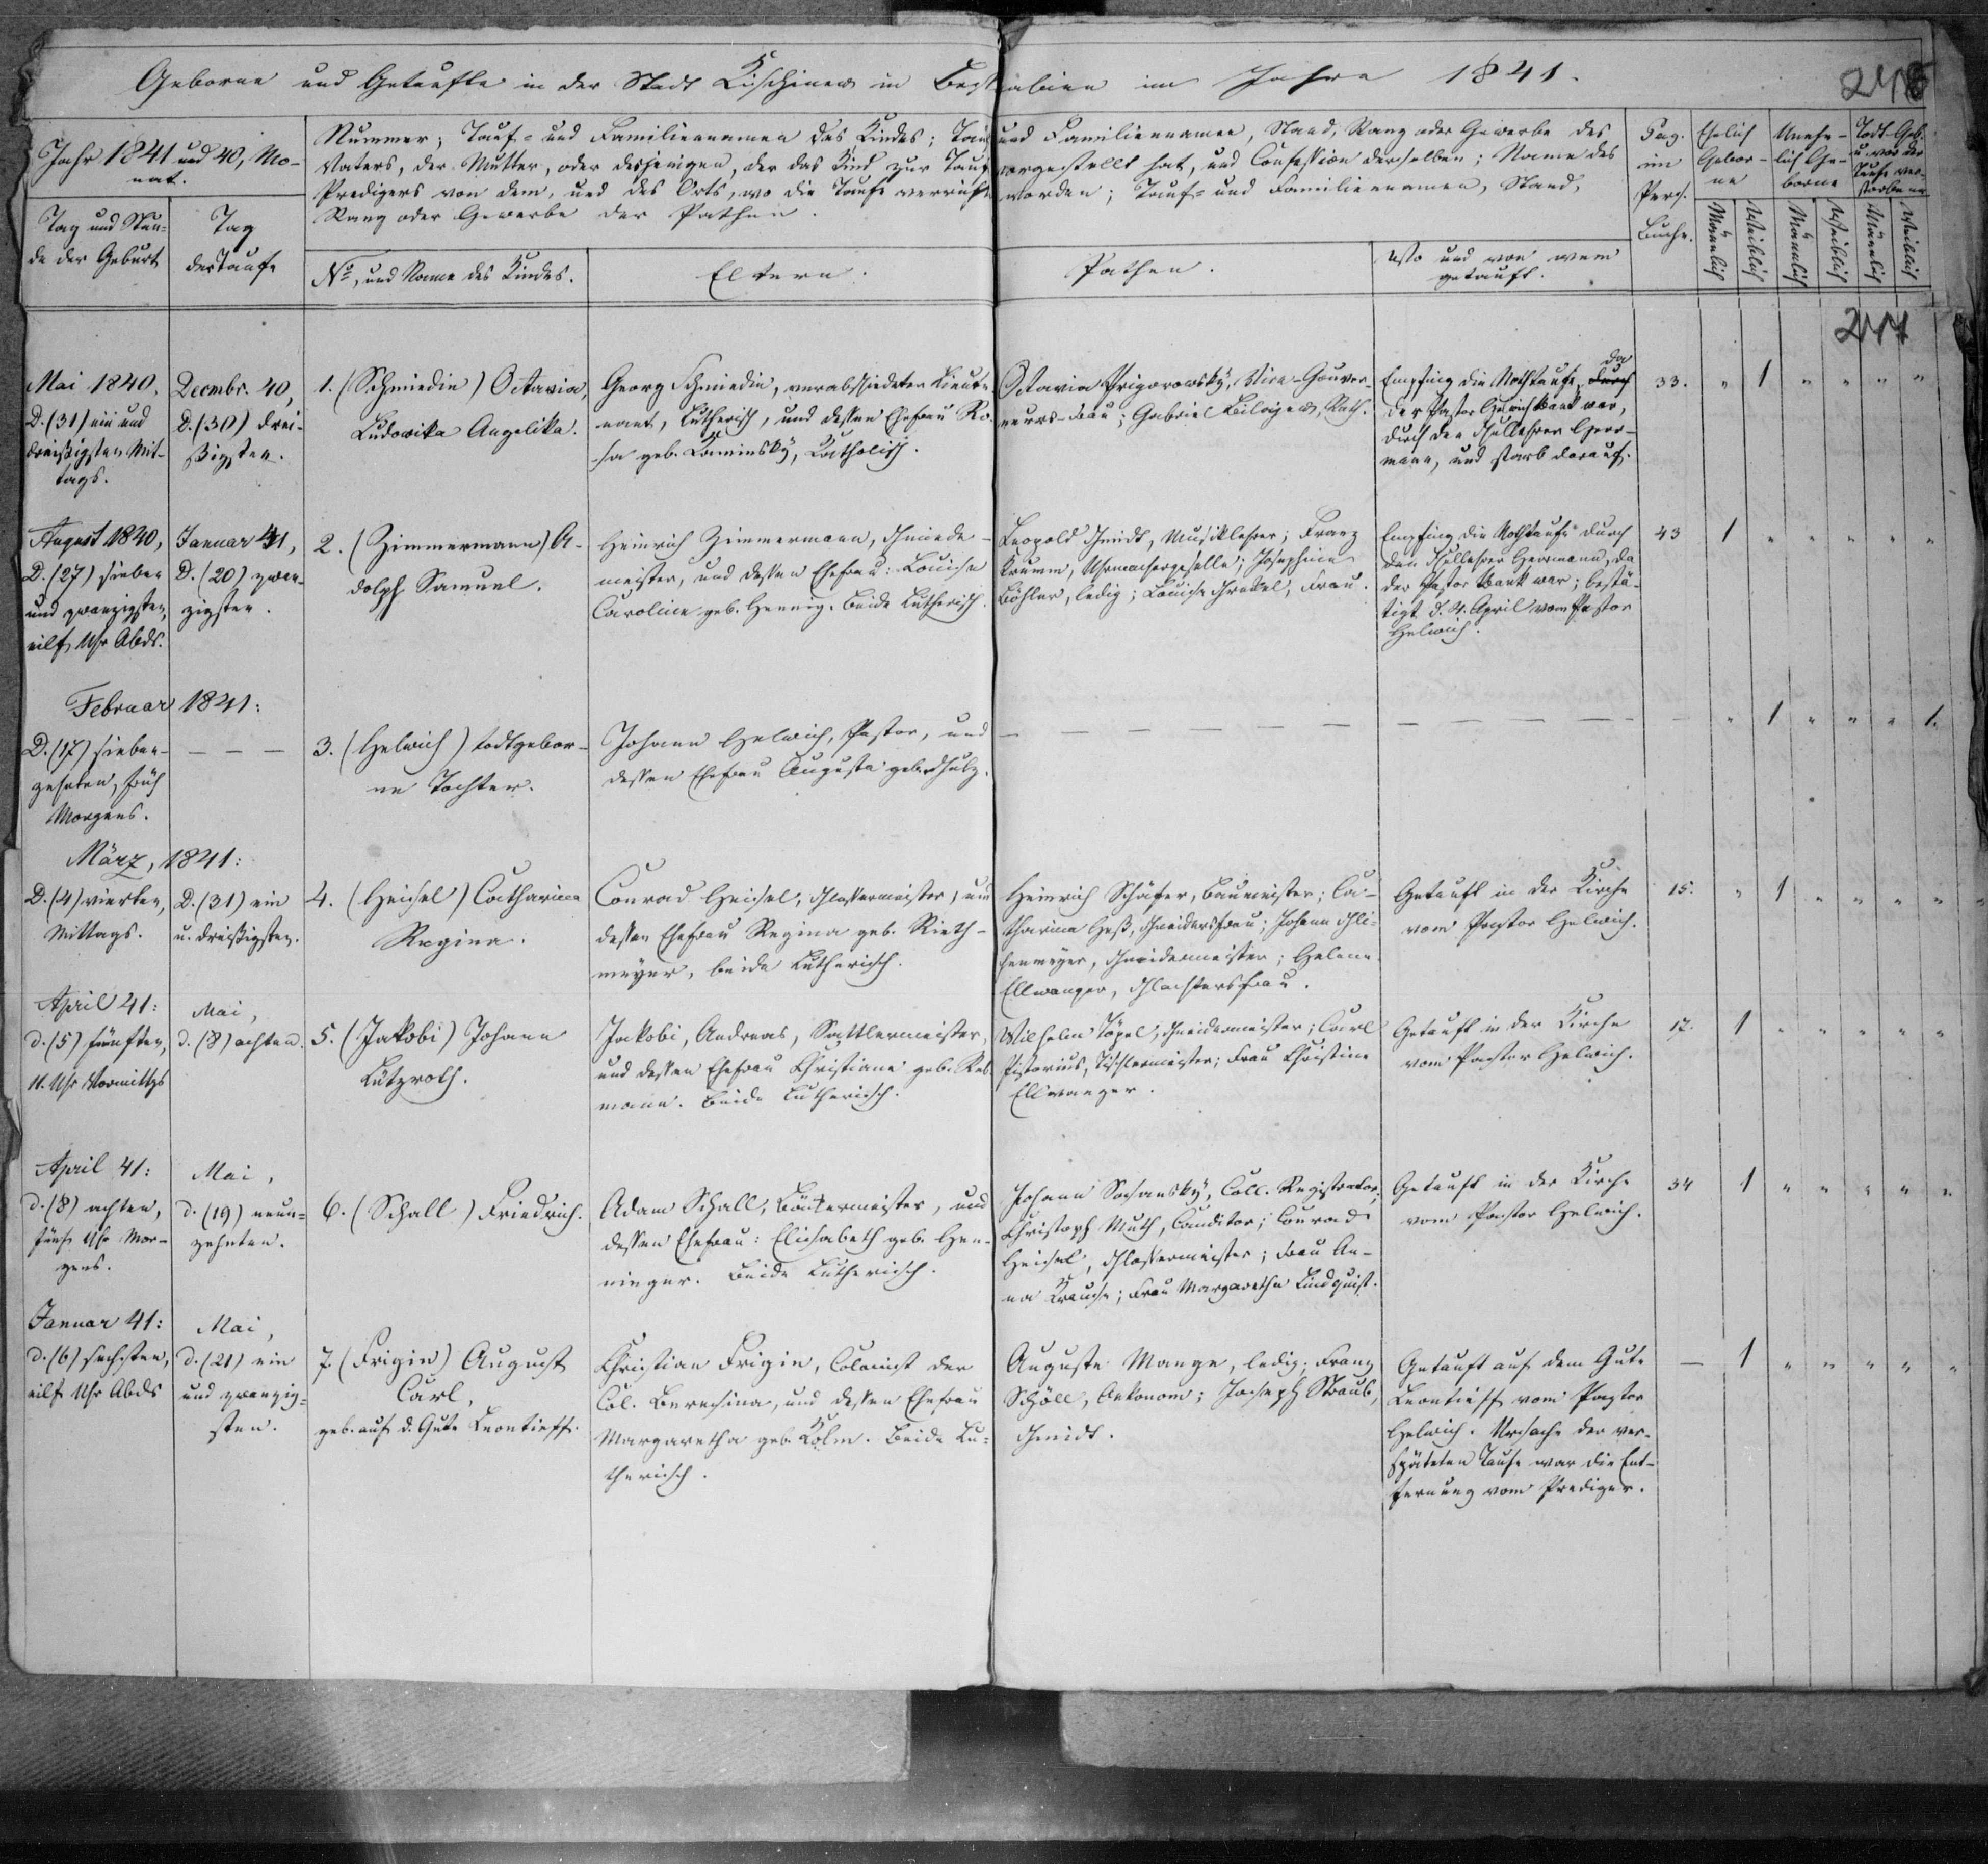 Geborne und Getaufte in der Stadt Kischinew in Bessarabien im Jahre 1841.
Jahr 1841 und 40, Mo-
nat.
Tag und Stun-
de der Geburt
Tag
der Taufe
Nummer; Tauf- und Familiennamen des Kindes; Tauf und Familiennamen, Stand, Rang oder Gewerbe des
Vaters, der Mutter, oder desjenigen, der das Kind zur Taufe vorgestellt hat, und Confession derselben; Name des
Predigers von dem, und des Orts, wo die Taufe verricht worden; Tauf- und Familiennamen, Stand,
Rang oder Gewerbe der Pathen.
No, und Name des Kindes.
Eltern.
Pathen.
Wo und von wem
getauft.
Pag.
im
Pers.
Buche.
Ehelich
Gebor-
ne
Unehe-
lich Ge-
borne
Todt-Geb.
u. vor der
Taufe ver-
storbene
Männlich
Weiblich
Männlich
Weiblich
Männlich
Weiblich
244
Mai 1840.
D. (31) ein und
dreißigsten Mit-
tags.
Decmbr. 40,
D. (30) drei-
ßigsten.
1. (Schmiedin) Octavia,
Ludovika Angelika.
Georg Schmiedin, verabschiedeter Lieute-
nant, Lutherisch, und dessen Ehefrau Ro-
sa geb. Kaminsky, Katholisch.
Octavia Prigorowsky, Vice-Gouver-
neurs-Frau; Gabriel Rath.
Empfing die Nothtaufe, da
der Pastor Helwich krank war,
durch den Schullehrer Herr-
mann, und starb darauf.
33. " 1 " " " "
August 1840,
D. (27) sieben
und zwanzigsten,
eilf Uhr Abds.
Januar 41,
D. (20) zwan-
zigsten.
2. (Zimmermann) A-
dolph Samuel.
Heinrich Zimmermann, Schmiede-
meister, und dessen Ehefrau: Louise
Caroline geb. Hennig. Beide Lutherisch.
Leopold Schmidt, Musiklehrer; Franz
Krumm, Uhrmachergeselle; Josephine
Böhler, ledig; Louise Frau.
Empfing die Nothtaufe durch
den Schullehrer Herrmann, da
der Pastor krank war; bestä-
tigt d. 4. April vom Pastor
Helwich.
43 1 " " " " "
Februar 1841:
D. (17) sieben-
zehnten, früh
Morgens.
— — —
3. (Helwich) todtgebor-
ne Tochter.
Johann Helwich, Pastor, und
dessen Ehefrau Augusta geb. Schulz.
— — — — — — — — — — — — — " 1 " " " 1.
März, 1841:
D. (4) vierten,
Mittags.
D. (31) ein
u. dreißigsten.
4. (Heisel) Catharina
Regina.
Conrad Heisel, Schlossermeister, und
dessen Ehefrau Regina geb. Rieth-
meyer, beide Lutherisch.
Heinrich Schäfer, Baumeister; Ca-
tharina Heß, Schneidersfrau; Johann
Schneidermeister; Helena
Ellwanger, Schlachtersfrau.
Getauft in der Kirche
vom Pastor Helwich.
15. " 1 " " " "
April 41:
d. (5) fünften,
11. Uhr Vormittgs
Mai,
d. (8) achten.
5. (Jakobi) Johann
Lützroth.
Jakobi, Andreas, Sattlermeister,
und dessen Ehefrau Christiane geb. Reb-
mann. Beide Lutherisch.
Wilhelm Töpel, Schneidermeister; Carl
Pistorius, Tischlermeister; Frau Christine
Ellwanger.
Getauft in der Kirche
vom Pastor Helwich.
17. 1 " " " " "
April 41:
d. (8) achten,
fünf Uhr Mor-
gens.
Mai,
d. (19) neun-
zehnten.
6. (Schall) Friedrich.
Adam Schall, Bäckermeister, und
dessen Ehefrau: Elisabeth geb. Hen-
ninger. Beide Lutherisch.
Johann Sochansky, Coll. Registrator;
Christoph Muth, Conditor; Conrad
Heisel, Schlossermeister; Frau An-
na Krause; Frau Margaretha Lindquist.
Getauft in der Kirche
vom Pastor Helwich.
34 1 " " " " "
Januar 41:
d. (6) sechsten,
eilf Uhr Abds
Mai,
d. (21) ein
und zwanzig-
sten.
7. (Frigin) August
Carl,
geb. auf d. Gute Leontieff.
Christian Frigin, Colonist der
Col. Beresina, und dessen Ehefrau
Margaretha geb. Kolm. Beide Lu-
therisch.
Auguste Mange, ledig; Franz
Schöll, Oekonom; Joseph Straub,
Schmidt.
Getauft auf dem Gute
Leontieff vom Pastor
Helwich. Ursache der ver-
späteten Taufe war die Ent-
fernung vom Prediger.
— 1 " " " " "